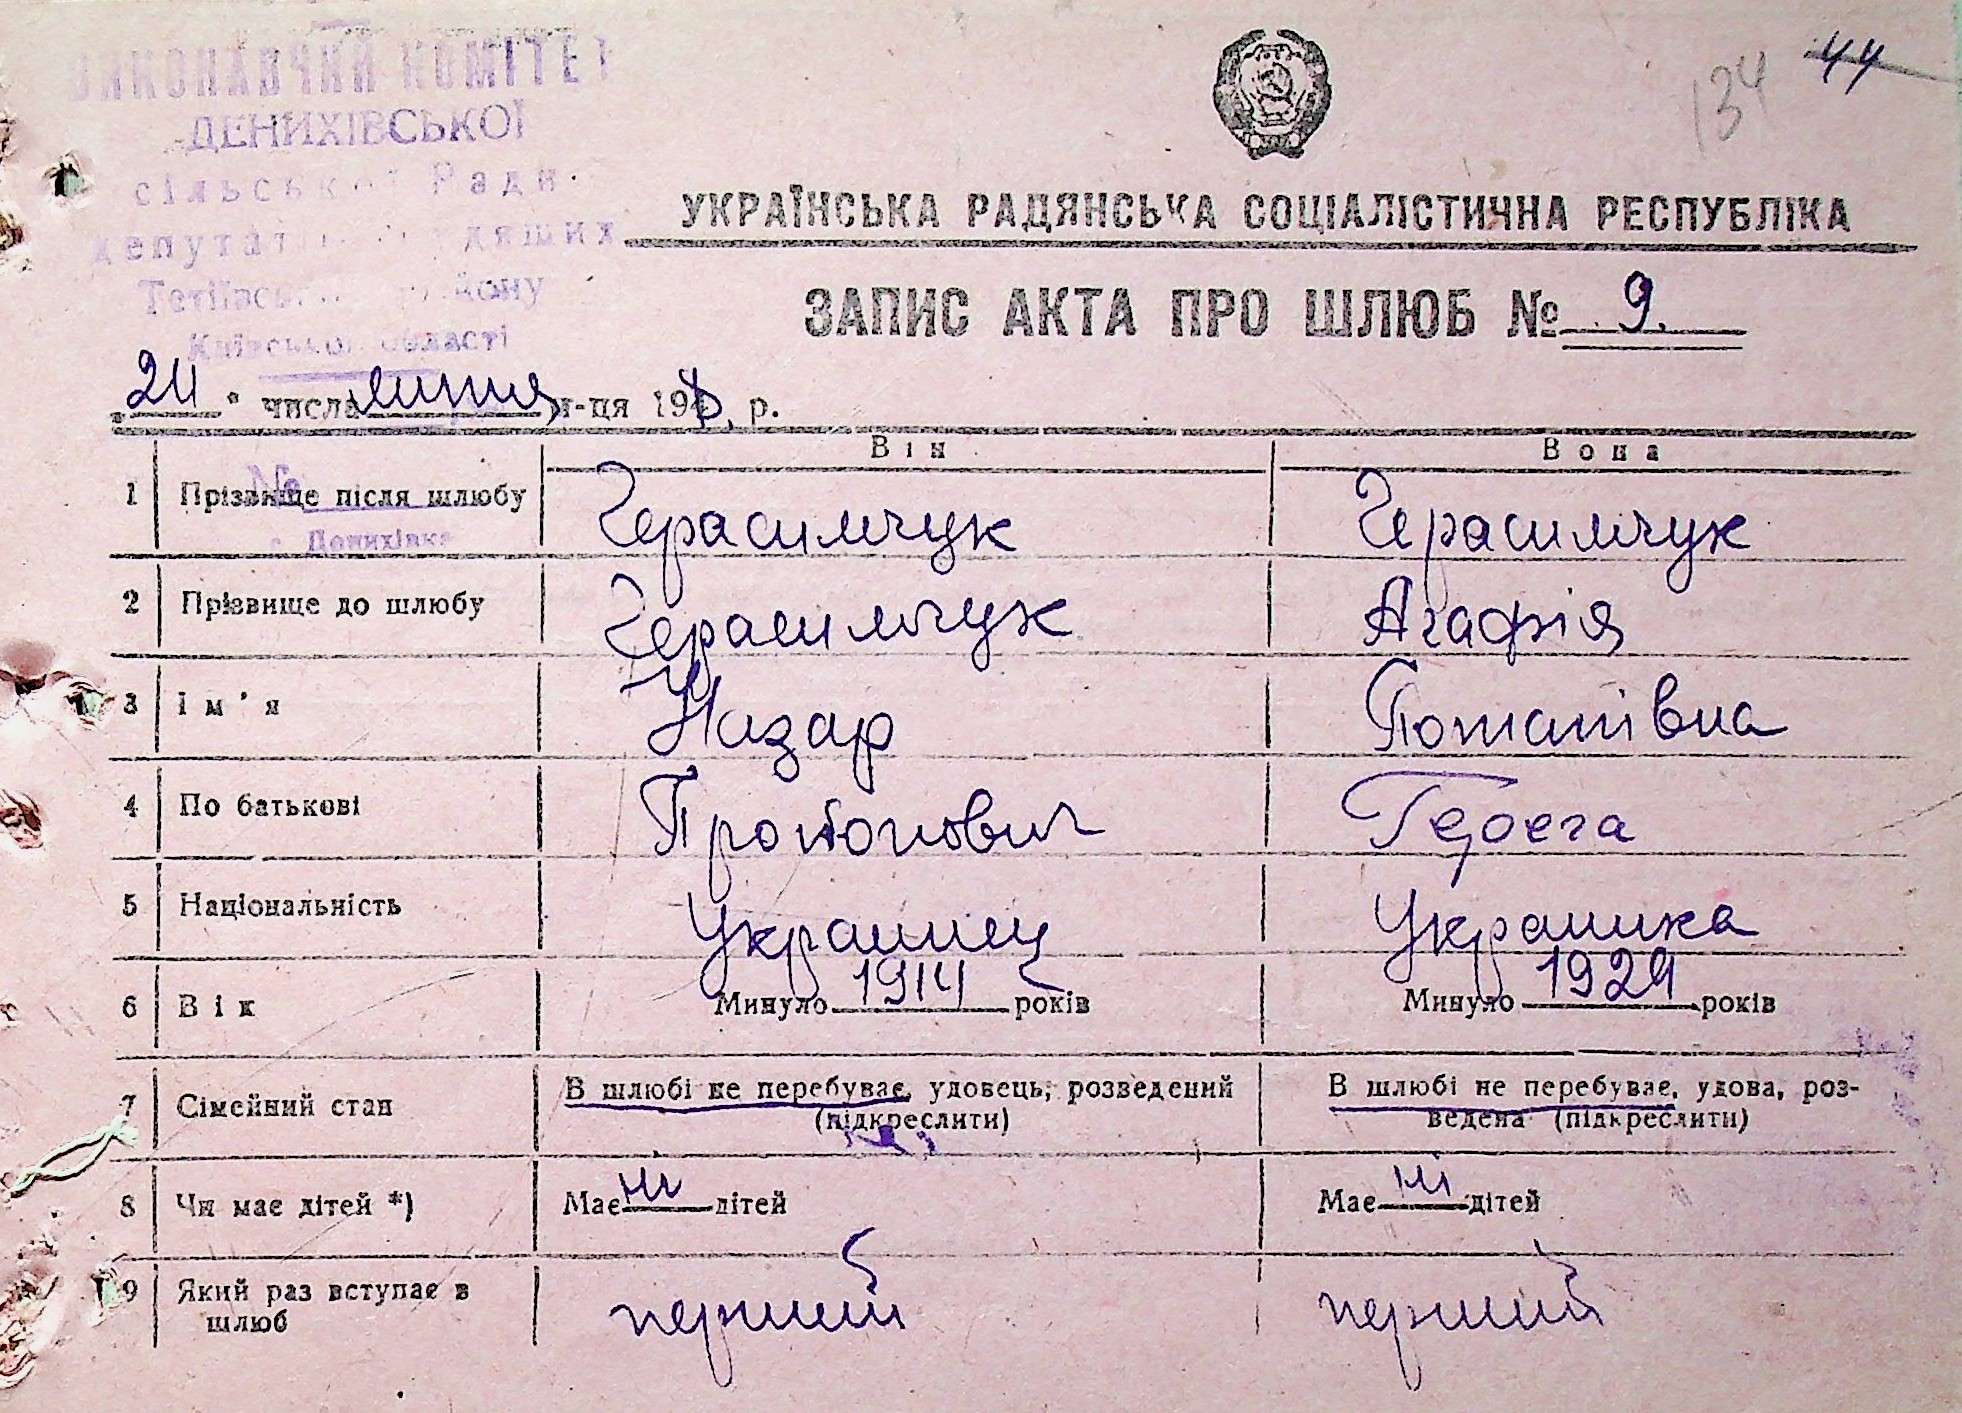 ВИКОНАВЧИЙ КОМІТЕТ
ДЕНИХІВСЬКОЇ
сільської Ради
депутатів трудящих
Тетіївського району
Київської області
134 44
УКРАЇНСЬКА РАДЯНСЬКА СОЦІАЛІСТИЧНА РЕСПУБЛІКА
ЗАПИС АКТА ПРО ШЛЮБ № 9.
„24" числа липня м-ця 194 р.
Він Вона
№
с. Денихівка
1 Прізвище після шлюбу Герасимчук Герасимчук
2 Прізвище до шлюбу Герасимчук Агафія
3 Ім'я Назар Потапівна
4 По батькові Прокопович
5 Національність Украинец Украинка
6 Вік Минуло 1914 років Минуло 1924 років
7 Сімейний стан В шлюбі не перебуває, удовець, розведений (підкреслити) В шлюбі не перебуває, удова, роз-
ведена (підкреслити)
8 Чи має дітей *) Має ні дітей Має ні дітей
9 Який раз вступає в шлюб перший перший